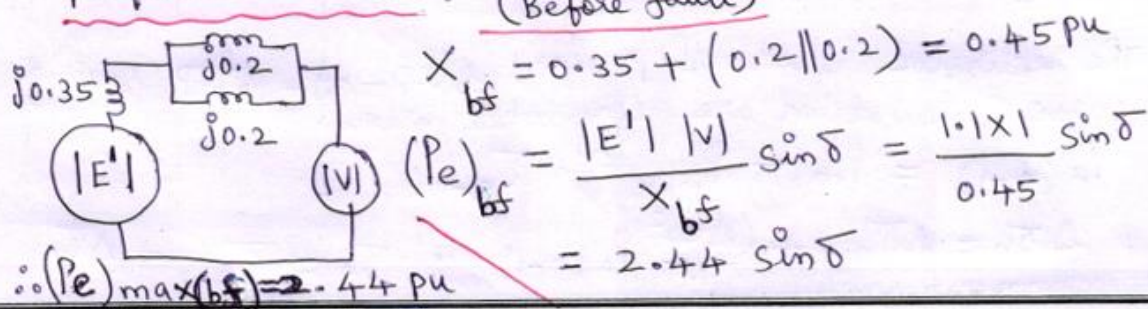 (Before fault)
j0.35
j0.2
j0.2
|E'|
|V|
X_bf = 0.35 + (0.2||0.2) = 0.45 pu
(Pe)_bf = |E'| |V| / X_bf sin δ = 1.1X1 / 0.45 sin δ
= 2.44 sin δ
∴ (Pe) max(bf) = 2.44 pu